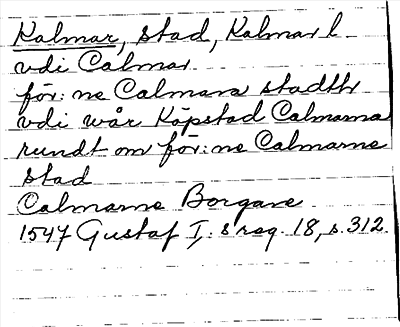 Kalmar, stad, Kalmar l
vdi Calmar
för:ne Calmara stadth
vdi wår Köpstad Calmarna
rundt om för:ne Calmarne
stad
Calmarne Borgare
1547 Gustaf I:s reg. 18, s. 312.